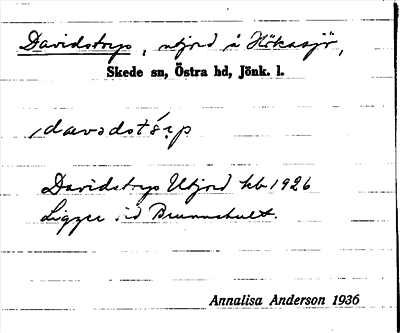 Davidstorp, utjord å Hökasjö,
Skede sn, Östra hd, Jönk. l.
Davidstorp Utjord kb 1926
Ligger vid Brunnshult.
Annalisa Anderson 1936